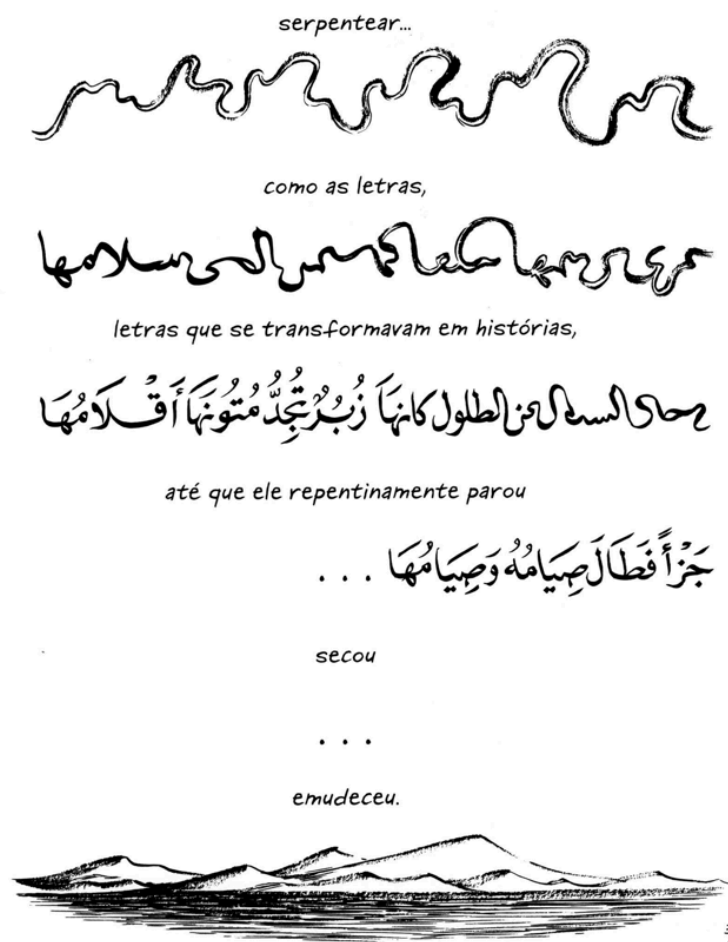 serpentear...
como as letras,
سلامها
letras que se transformavam em histórias,
عن الطلول كانهَا زُبُرٌ تُجِدُّ مُتُونَهَا أَقْلَامُهَا
até que ele repentinamente parou
جَزْأً فَطَالَ صِيَامُهُ وَصِيَامُهَا . . .
secou
. . .
emudeceu.